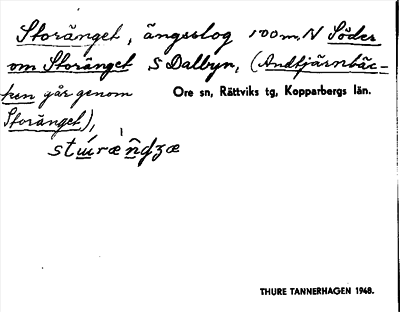 Storänget, ängsslog 100 m. N Söder
om Storänget S Dalbyn, (Andtjärnbäc-
ken går genom
Storänget),
Ore sn, Rättviks tg, Kopparbergs län.
THURE TANNERHAGEN 1948.